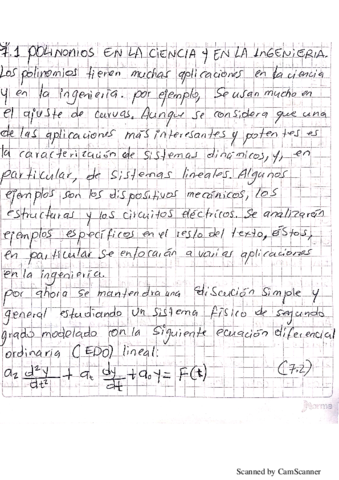 7.1 POLINOMIOS EN LA CIENCIA Y EN LA INGENIERIA.
Los polinomios tienen muchas aplicaciones en la ciencia
y en la ingenieria. por ejemplo, Se usan mucho en
el ajuste de curvas. Aunque se considera que una
de las aplicaciones más interesantes y potentes es
la caracterización de sistemas dinámicos, y, en
particular, de sistemas lineales. Algunos
ejemplos son los dispositivos mecánicos, las
estructuras y los circuitos eléctricos. Se analizarán
ejemplos especificos en el resto del texto, éstos,
en particular Se enfocarán a varias aplicaciones
en la ingenieria.
por ahora se mantendra una discución simple y
general estudiando un sistema físico de segundo
grado modelado con la siguiente ecuación diferencial
ordinaria (EDO) lineal:
a₂ d²y/dt² + a₁ dy/dt + a₀y = F(t) (7.2)
Scanned by CamScanner